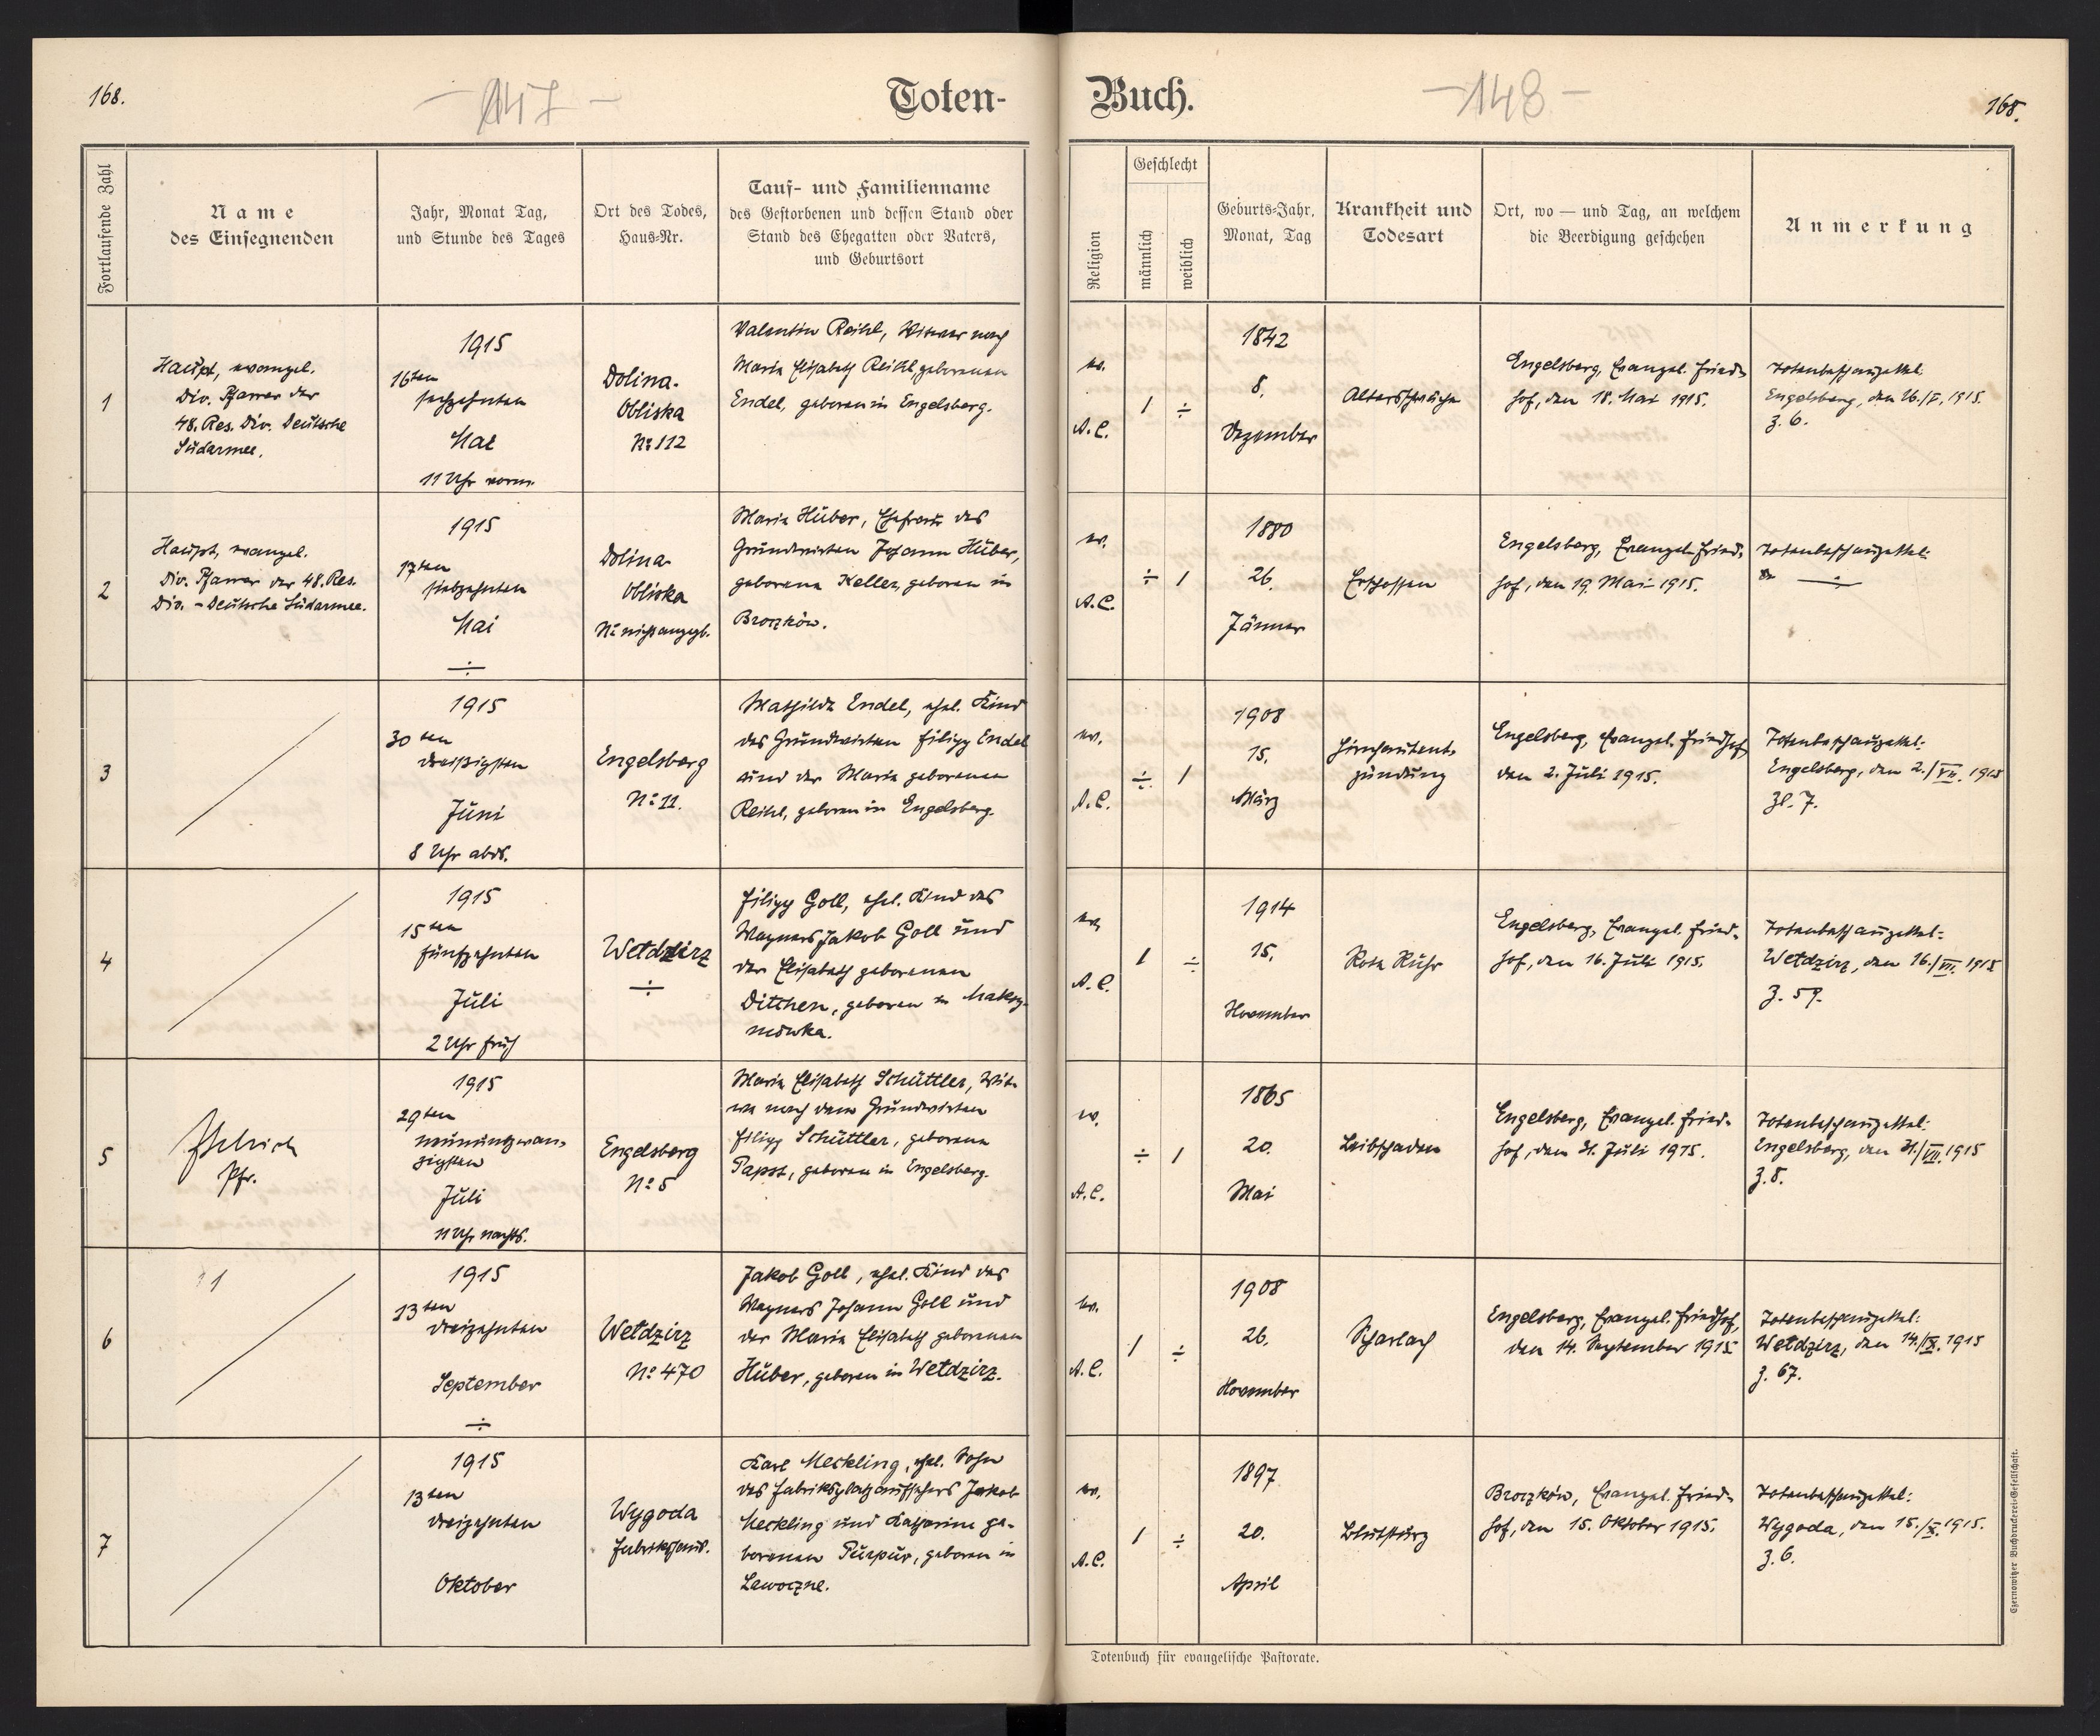 168.
147
Toten-
Buch.
148
168.
Fortlaufende Zahl
Name
des Einsegnenden
Jahr, Monat Tag,
und Stunde des Tages
Ort des Todes,
Haus-Nr.
Tauf- und Familienname
des Gestorbenen und dessen Stand oder
Stand des Ehegatten oder Vaters,
und Geburtsort
Religion
Geschlecht
männlich
weiblich
Geburts-Jahr,
Monat, Tag
Krankheit und
Todesart
Ort, wo — und Tag, an welchem
die Beerdigung geschehen
Anmerkung
1
Haupt, evangel.
Div. Pfarrer der
48. Res. Div. Deutsche
Südarmee.
1915
16ten
sechzehnten
Mai
11 Uhr vorm.
Dolina-
Obliska
No 112
Valentin Reihl, Witwer nach
Maria Elisabeth Reihl, geborenen
Endel, geboren in Engelsberg.
ev.
A.C.
1 ÷
1842
8.
Dezember
Altersschwäche
Engelsberg, Evangel. Fried-
hof, den 18. Mai 1915.
Totenbeschauzettel:
Engelsberg, den 26./V. 1915.
Z. 6.
2
Haupt, evangel.
Div. Pfarrer der 48. Res.
Div. - Deutsche Südarmee.
1915
17ten
siebzehnten
Mai
÷
Dolina-
Obliska
No nicht angegb.
Maria Huber, Ehefrau des
Grundwirten Johann Huber,
geborene Keller, geboren in
Broczków.
ev.
A.C.
÷ 1
1880
26.
Jänner
Erschossen
Engelsberg, Evangel. Fried-
hof, den 19. Mai 1915.
Totenbeschauzettel:
÷
3
1915
30ten
dreißigsten
Juni
8 Uhr abds.
Engelsberg
No 11.
Mathilde Endel, ehel. Kind
des Grundwirten Filipp Endel
und der Maria geborenen
Reihl, geboren in Engelsberg.
ev.
A.C.
÷ 1
1908
15.
März
Hirnhautent-
zündung
Engelsberg, Evangel. Friedhof,
den 2. Juli 1915.
Totenbeschauzettel:
Engelsberg, den 2./VII. 1915
Zl. 7.
4
1915
15ten
fünfzehnten
Juli
2 Uhr früh
Wetdzirz
÷
Filipp Goll, ehel. Kind des
Wagners Jakob Goll und
der Elisabeth geborenen
Ditthen, geboren in Maksy-
mówka.
ev.
A.C.
1 ÷
1914
15.
November
Rote Ruhr
Engelsberg, Evangel. Fried-
hof, den 16. Juli 1915.
Totenbeschauzettel:
Wetdzirz, den 16./VII. 1915
Z. 59.
5
Pfr.
1915
29ten
neunundzwan-
zigsten
Juli
11 Uhr nachts.
Engelsberg
No 5
Maria Elisabeth Schüttler, Wit-
we nach dem Grundwirten
Filipp Schüttler, geborene
Papst, geboren in Engelsberg.
ev.
A.C.
÷ 1
1865
20.
Mai
Leibschaden
Engelsberg, Evangel. Fried-
hof, den 31. Juli 1915.
Totenbeschauzettel:
Engelsberg, den 31./VII. 1915
Z. 8.
6
1915
13ten
dreizehnten
September
÷
Wetdzirz
No 470
Jakob Goll, ehel. Kind des
Wagners Johann Goll und
der Maria Elisabeth geborenen
Huber, geboren in Wetdzirz.
ev.
A.C.
1 ÷
1908
26.
November
Scharlach
Engelsberg, Evangel. Friedhof,
den 14. September 1915
Totenbeschauzettel:
Wetdzirz, den 14./IX. 1915
Z. 67.
7
1915
13ten
dreizehnten
Oktober
Wygoda
Karl Meckling, ehel. Sohn
des Fabriksplatzaufsehers Jakob
Meckling und Katharina ge-
borenen Purpur, geboren in
Lawoczne.
ev.
A.C.
1 ÷
1897
20.
April
Blutsturz
Broczków, Evangel. Fried-
hof, den 15. Oktober 1915.
Totenbeschauzettel:
Wygoda, den 15./X. 1915.
Z. 6.
Totenbuch für evangelische Pastorate.
Czernowitzer Buchdruckerei-Gesellschaft.